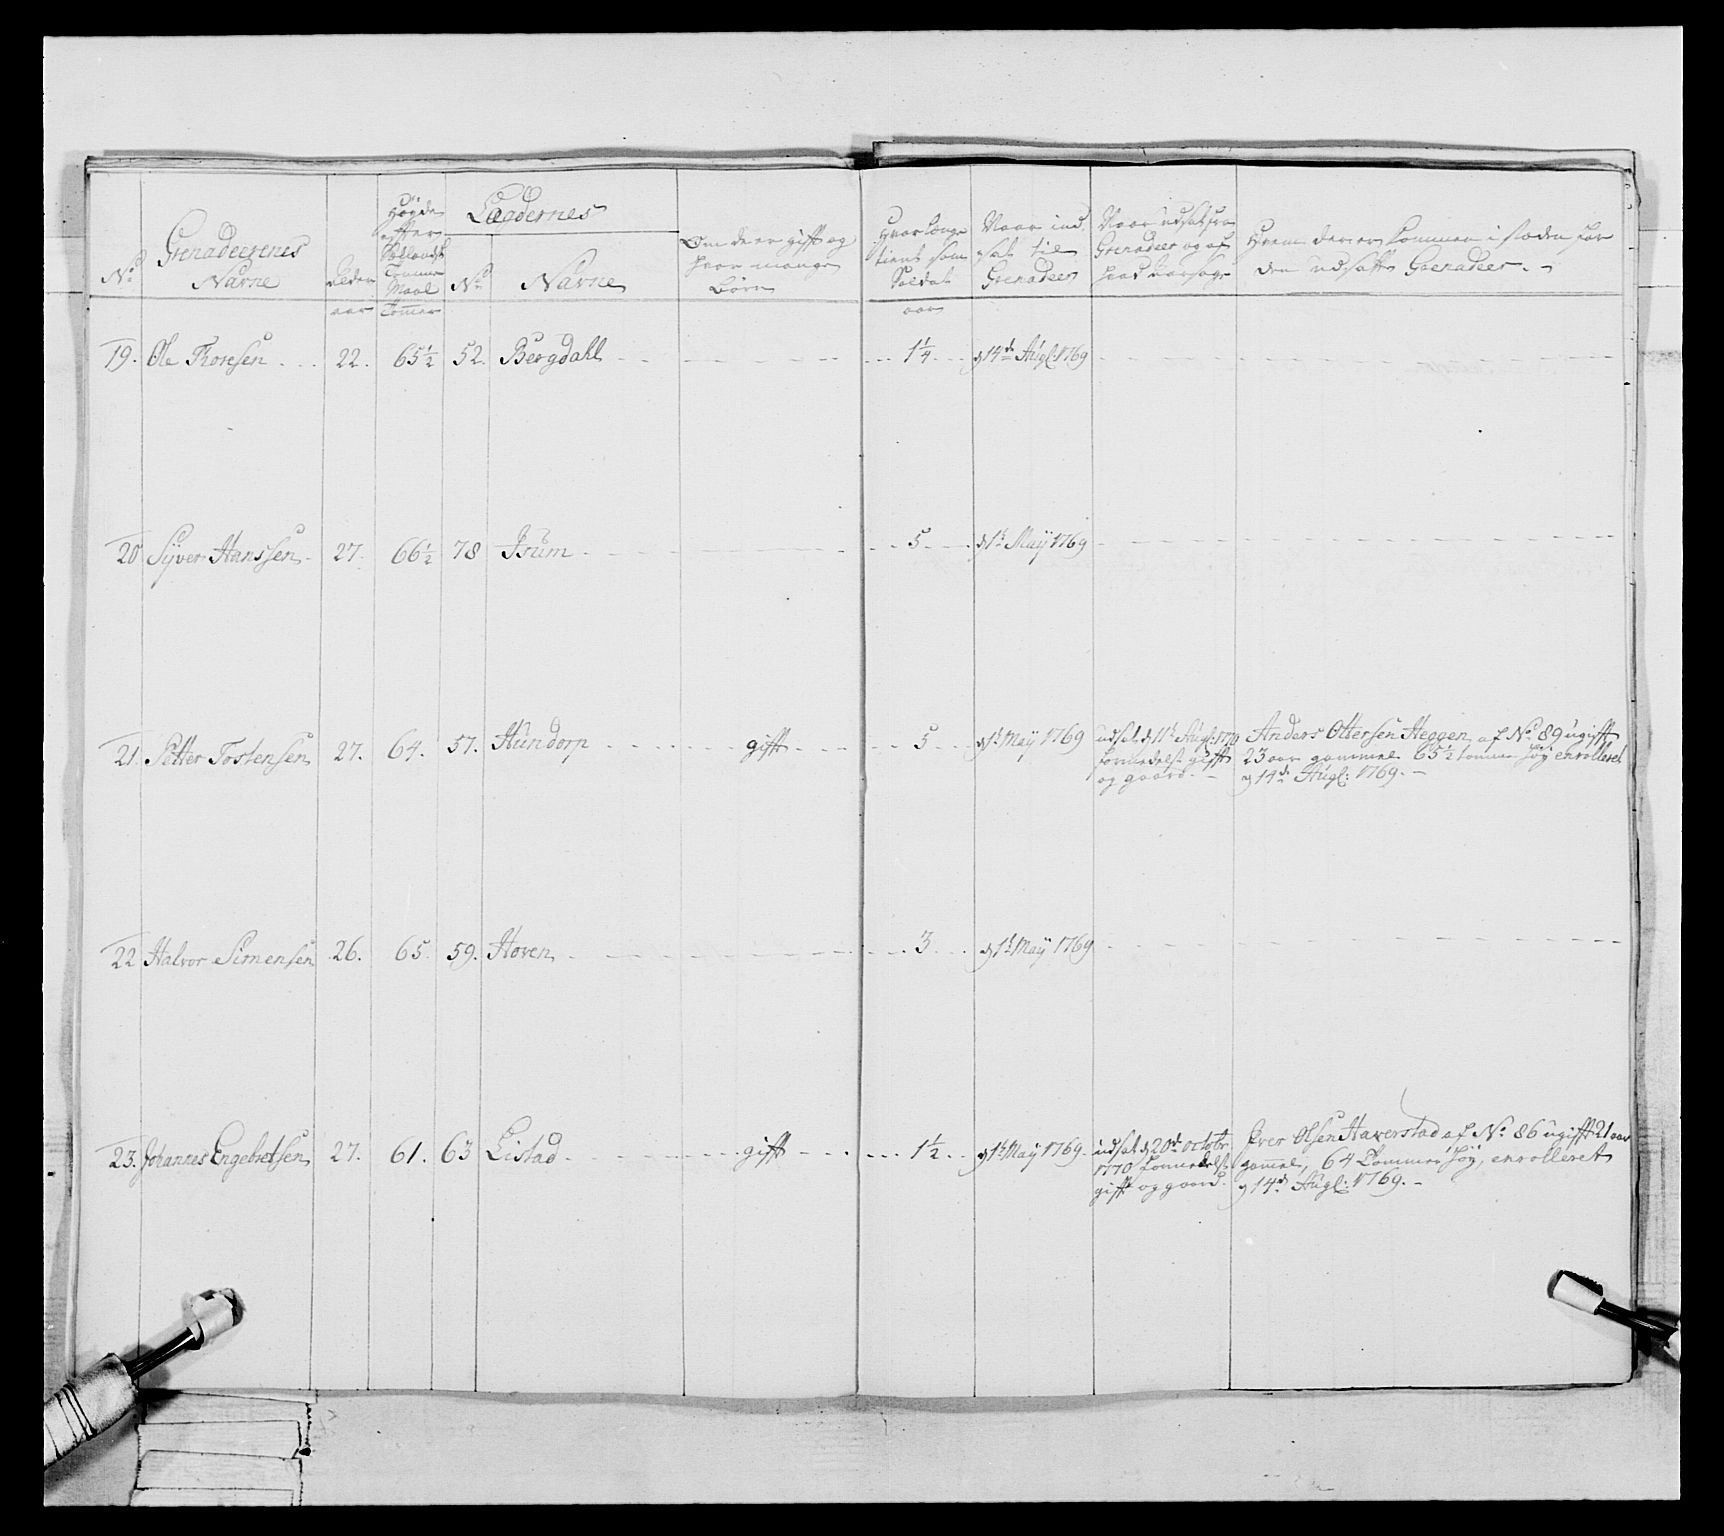 No
Grenadeerenes
Navne
Alder
aar
Høyde
efter
Sællandsk
Tomme
Maal
Tommer
Lægdernes
No
Navne
Om de er gift og
hvor mange
Børn
Hvor længe
tient som
Soldat
aar
Naar ind
sat til
Grenadeer
Naar udsat fra
Grenadeer og af
hvad aarsage
Hvem der er kommen i stæden for
den udsatte Grenadeer. -
19. Ole Thoresen 22. 65½ 52. Bergdahl 1¼ d 14de Augl: 1769
20 Syver Hanssen 27. 66½ 78 Isum 5 d 1t May 1769
21. Petter Tostensen 27. 64. 57. Hundorp gift 5 d 1t May 1769
udsat d 11t Augl: 1770
formedelst gift
og gaard. -
Anders Ottersen Heggen, af No 89 ugift
23 aar gammel 65½ tommer høy enrolleret
d 14de Augl: 1769. -
22 Halvor Simensen 26. 65. 59. Hoven 3 d 1t May 1769
23. Johannes Engebretsen 27. 61. 63 Listad gift 1½ d 1t May 1769
udsat d 20de octobr
1770 formedelst
gift og gaard.
Iver Olsen Haverstad af No 86 ugift 21 aar
gammel, 64 Tommer høy, enrolleret
d 14de Augl: 1769. -